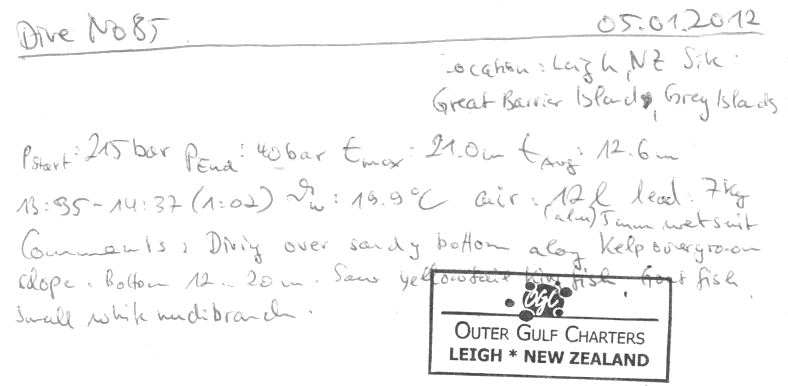 Dive No 85 05.01.2012
Location: Leigh, NZ Site:
Great Barrier Island, Grey Islands
PStart: 215 bar PEnd: 40 bar tmax: 21.0m tAvg: 12.6m
13:35-14:37 (1:02) ϑw: 19.9°C air: 12 l lead: 7kg
(alu) 5mm wetsuit
Comments: Diving over sandy bottom along Kelp overgrown
slope. Bottom 12..20m. Saw yellowtail king fish, Goat fish,
small white nudibranch.
OGC
OUTER GULF CHARTERS
LEIGH * NEW ZEALAND